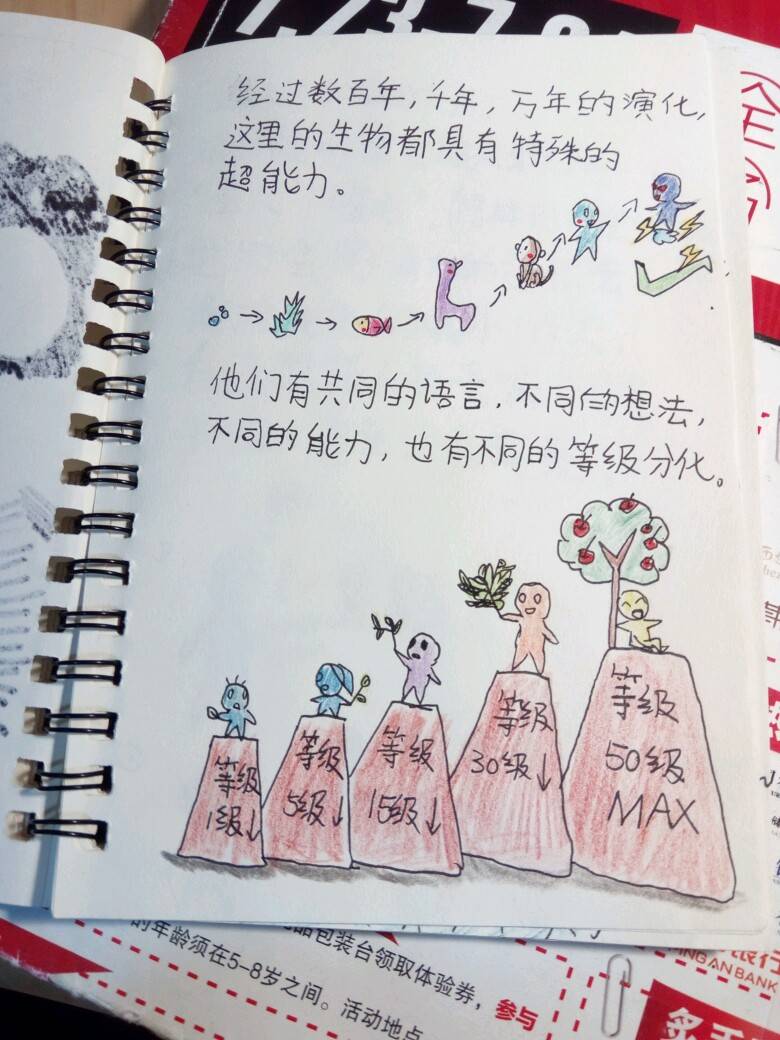 经过数百年，千年，万年的演化，
这里的生物都具有特殊的
超能力。
他们有共同的语言，不同的想法，
不同的能力，也有不同的等级分化。
等级
1级↓
等级
5级↓
等级
15级↓
等级
30级↓
等级
50级
MAX
包装台领取体验券，参与
的年龄须在5-8岁之间。活动地点
银行
PINGAN BANK